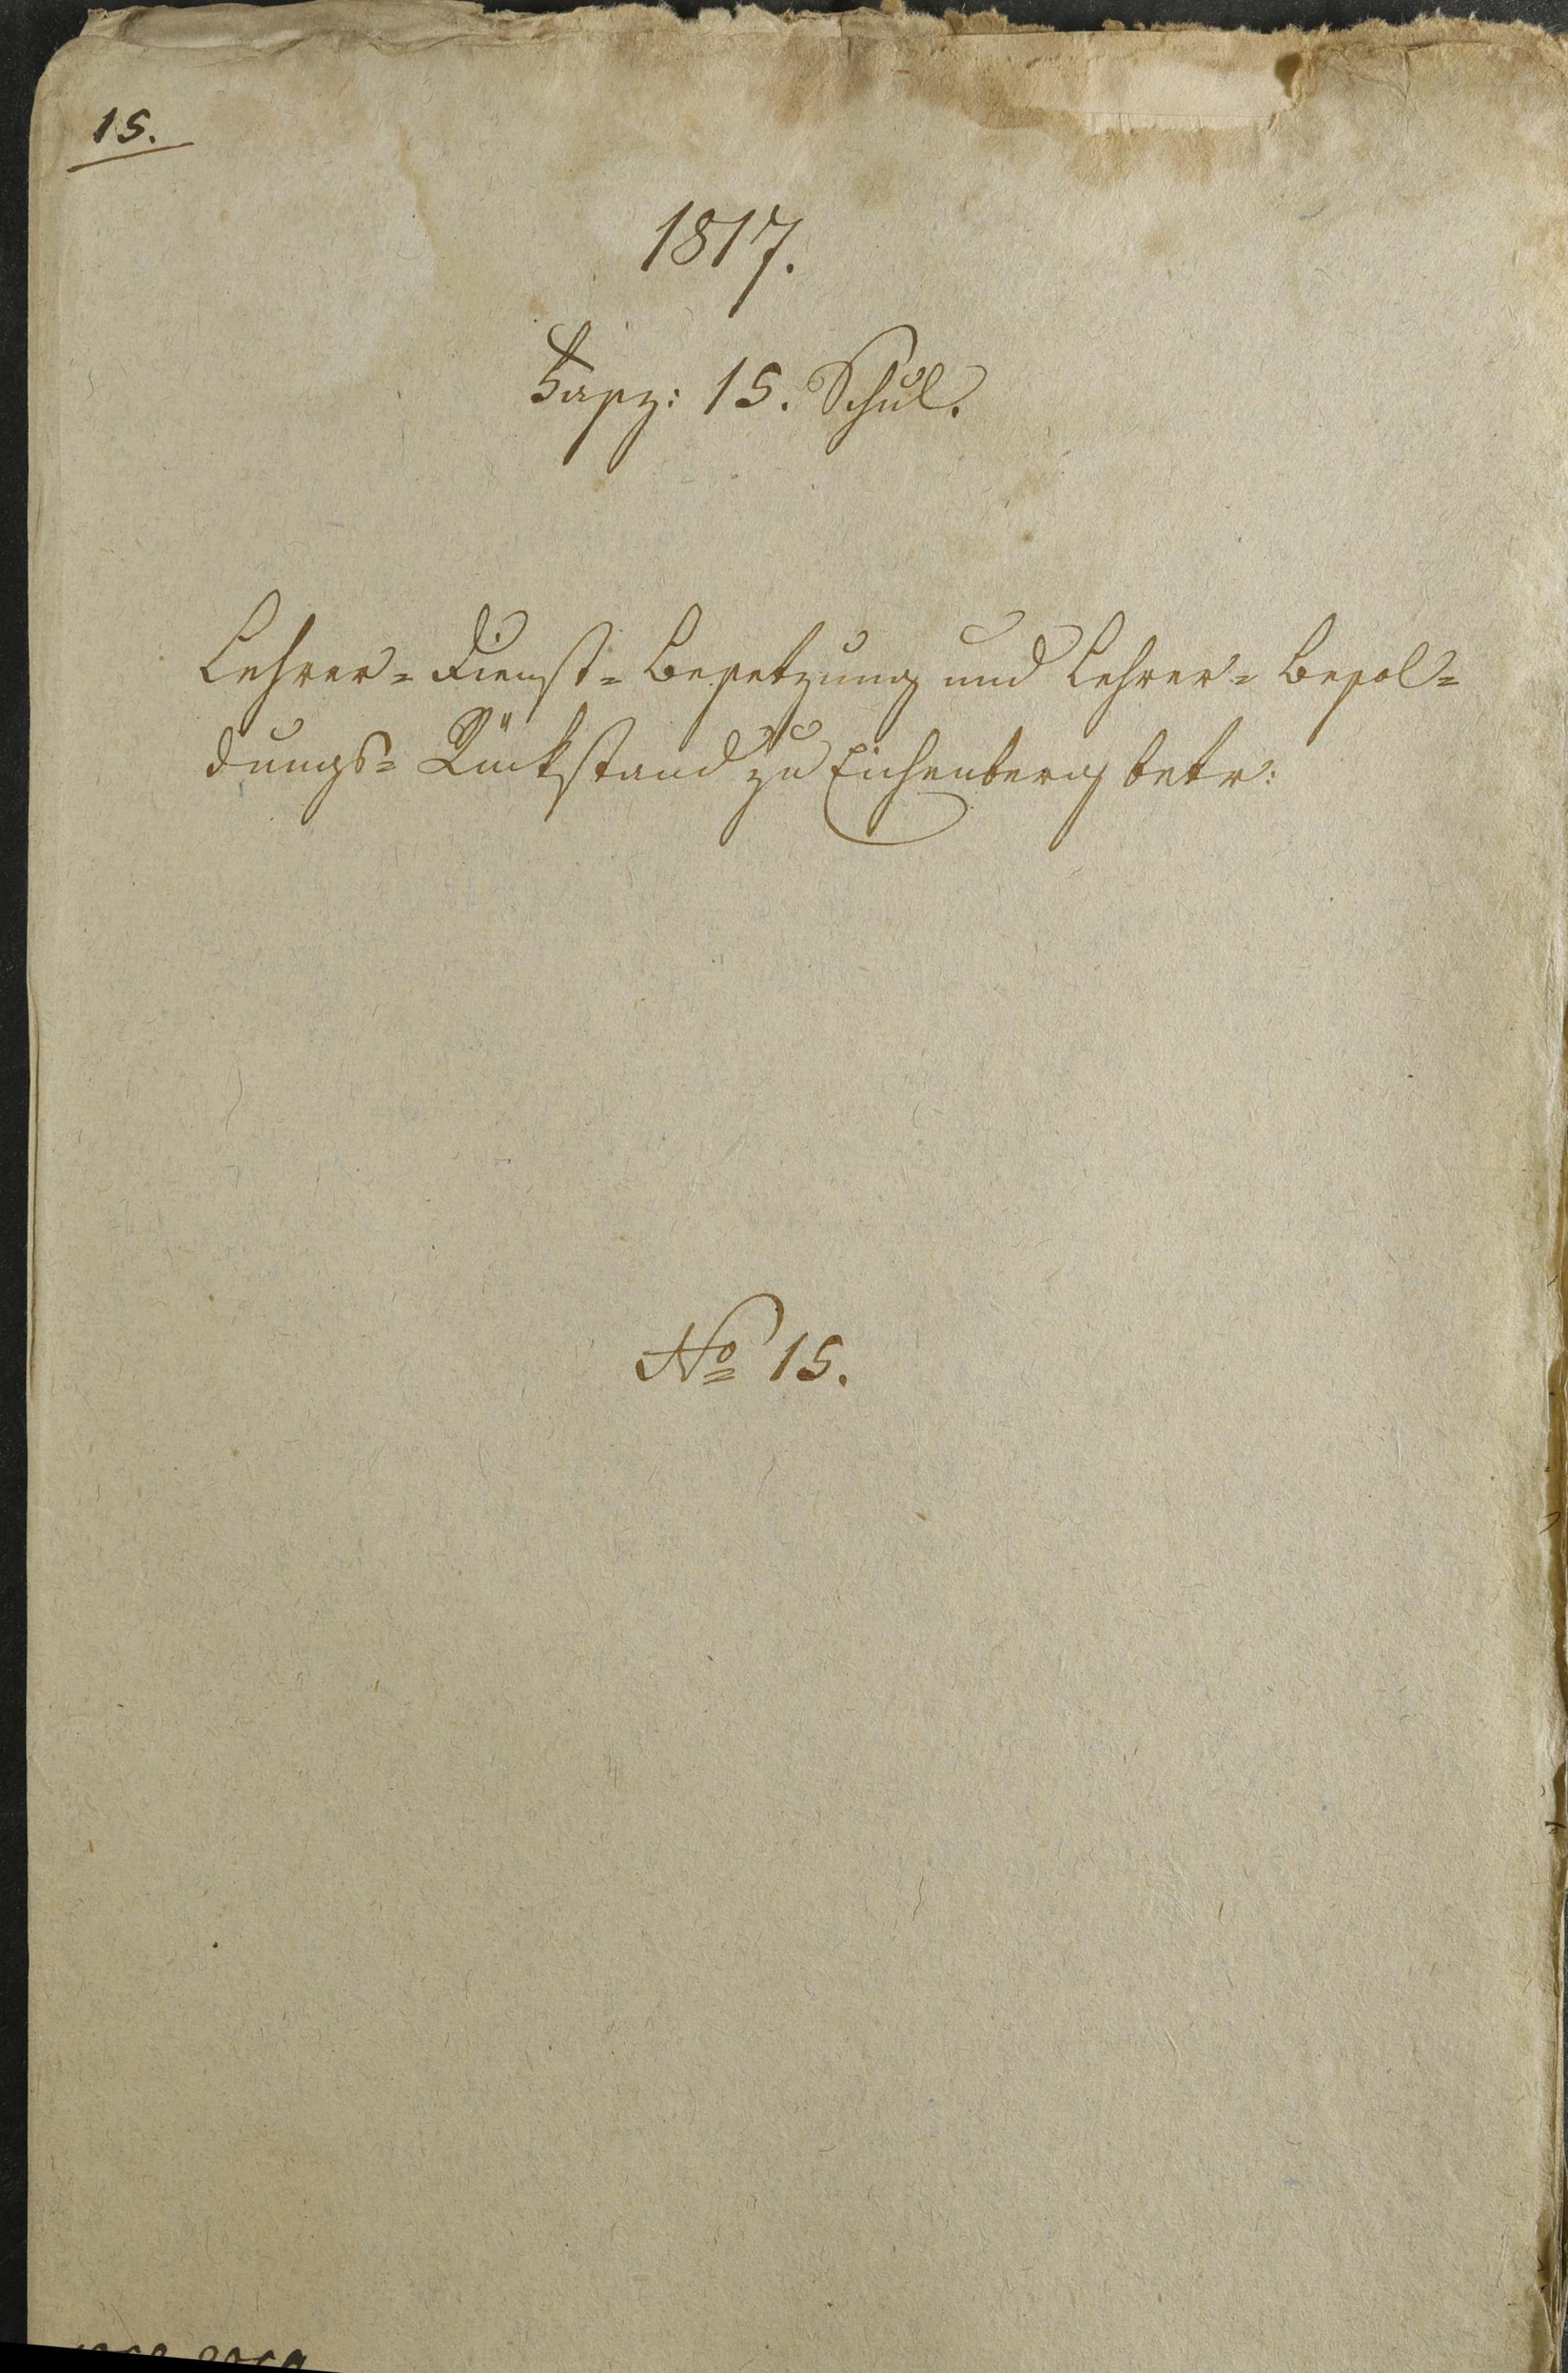 15.
1817.
Fasz: 15. Schul.
Lehrer= Dienst= Besetzung und Lehrer= Besol=
dungs= Rückstand zu Eichenberg betr:
No 15.